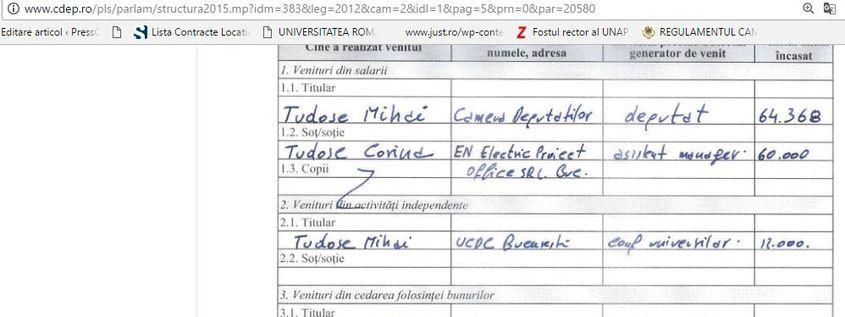 www.cdep.ro/pls/parlam/structura2015.mp?idm=383&leg=2012&cam=2&idl=1&pag=5&prn=0&par=20580
Editare articol ‹ Press Lista Contracte Locati UNIVERSITATEA ROM www.just.ro/wp-conte Fostul rector al UNAP REGULAMENTUL CAM
Cine a realizat venitul numele, adresa generator de venit încasat
1. Venituri din salarii
1.1. Titular
Tudose Mihai Camera Deputatilor deputat 64.368
1.2. Soț/soție
Tudose Corina EN Electric Proiect asistent manager. 60.000
1.3. Copii Office SRL Buc.
2. Venituri din activități independente
2.1. Titular
Tudose Mihai UCDC Bucuresti conf universitar. 12.000.
2.2. Soț/soție
3. Venituri din cedarea folosinței bunurilor
3.1. Titular